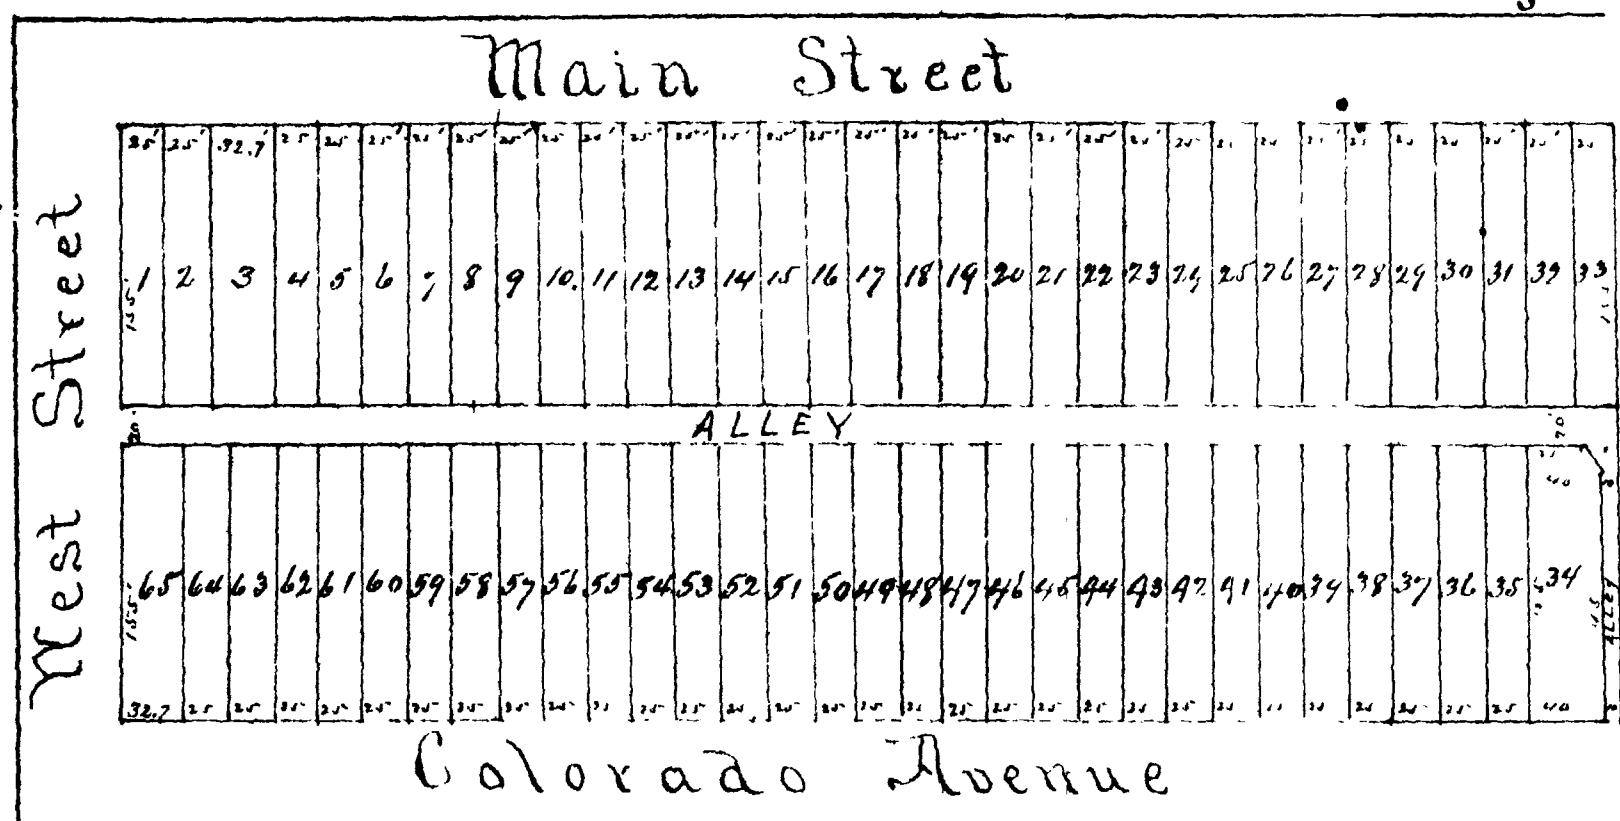 Main Street
25' 25' 32.7' 25 25 25' 25' 25' 25' 25 25' 25' 25' 25' 25' 25' 25' 25' 25' 25 25' 25' 25' 25 25 25 25' 25 25 25 25' 25' 25
1 2 3 4 5 6 7 8 9 10. 11 12 13 14 15 16 17 18 19 20 21 22 23 24 25 26 27 28 29 30 31 32 33
155'
West Street
ALLEY
20
20
40
65 64 63 62 61 60 59 58 57 56 55 54 53 52 51 50 49 48 47 46 45 44 43 42 41 40 39 38 37 36 35 34
155'
ALLEY
32.7 25 25 25 25 25 25 25 25 25 25 25 25 25 25 25 25 25 25 25 25 25 25 25 25 25 25 25 25 25 25 40
Colorado Avenue